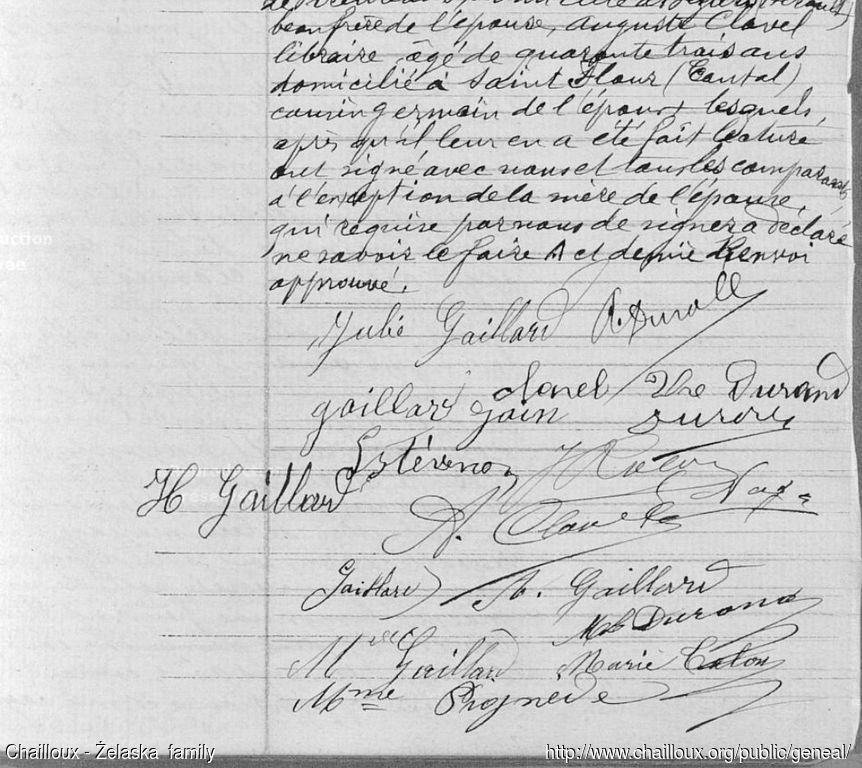 beau frère de l'épouse, Auguste Clavel
libraire âgé de quarante trois ans
domicilié à Saint Flour (Cantal)
cousin germain de l'époux lesquels,
après qu'il leur en a été fait lecture
ont signé avec nous et tous les comparants
à l'exception de la mère de l'épouse,
qui requise par nous de signer a déclaré
ne savoir le faire Act demie Renvoi
approuvé.
Julie Gaillard A. Durand
gaillard Vve Durand
Estévenon
H Gaillard
A. Clavel
Gaillard A. Gaillard
Durand
Mlle Gaillard Marie
Mme
uction
Chailloux - Želaska family
http://www.chailloux.org/public/geneal/